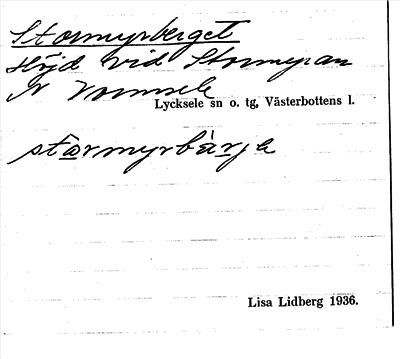 Stormyrberget
Höjd vid Stormyran
N Vormsele
Lycksele sn o. tg, Västerbottens l.
stårmyrbärje
Lisa Lidberg 1936.